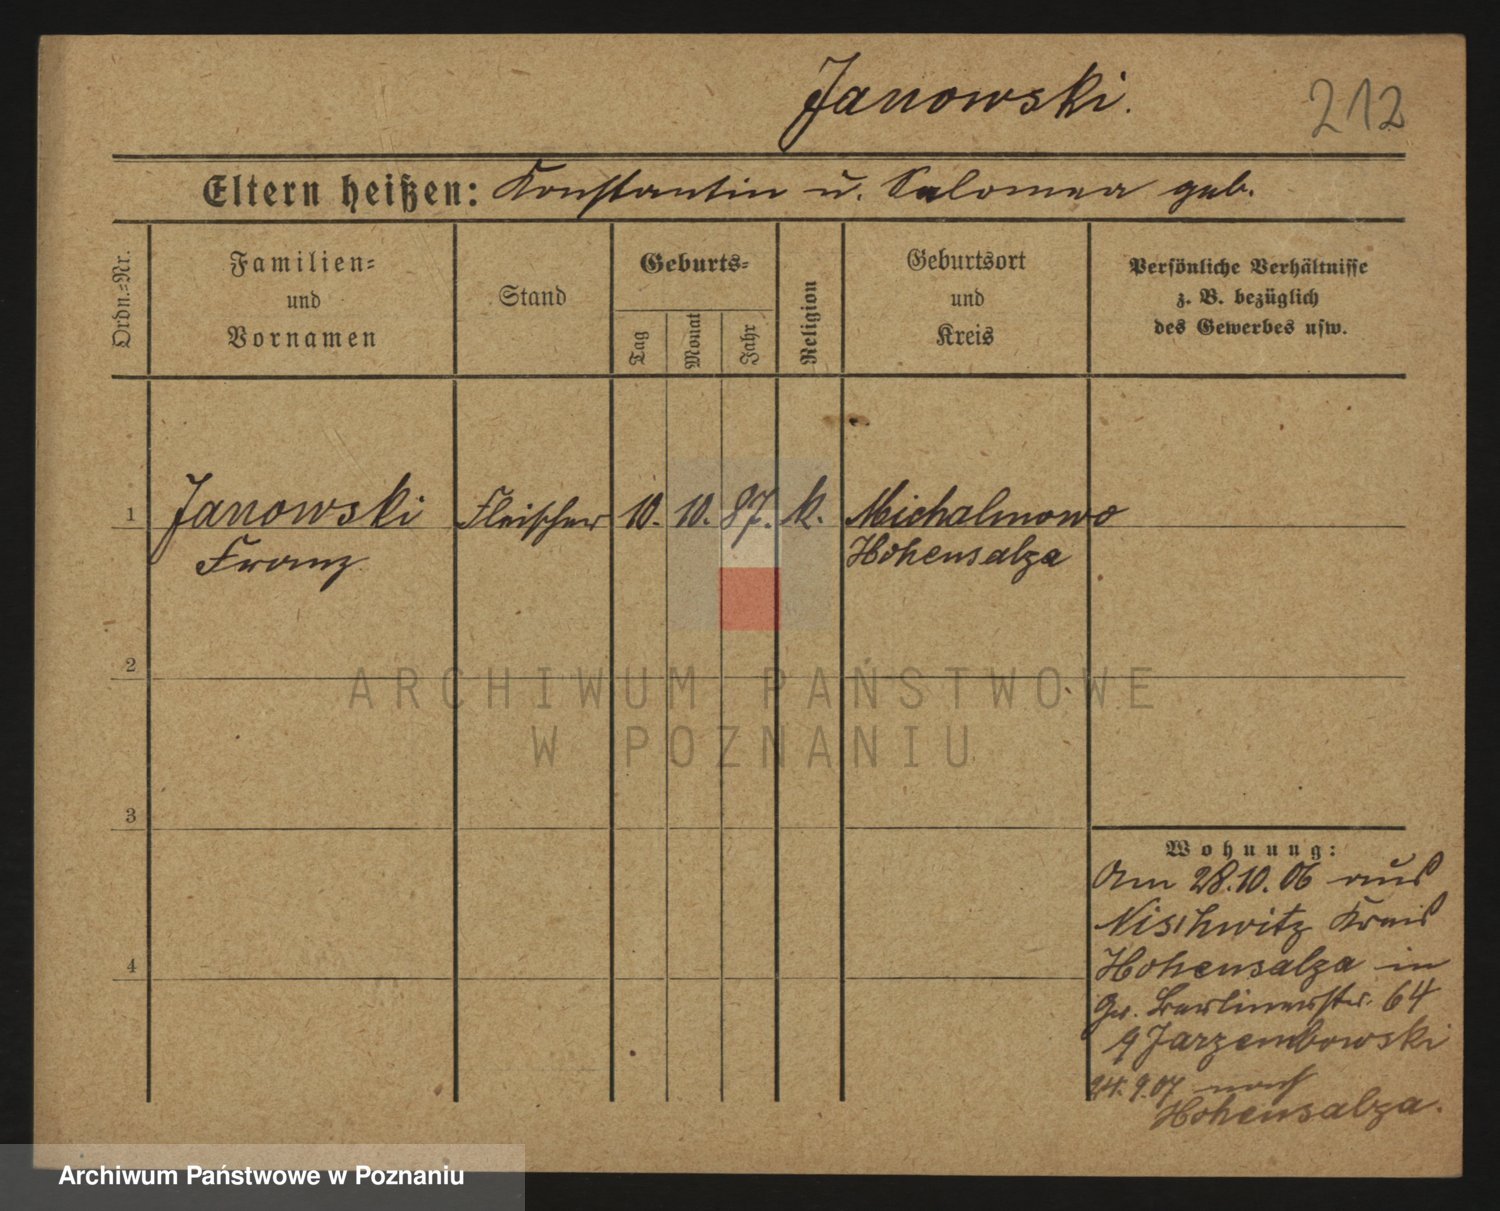 Janowski.
212
Eltern heißen: Konstantin u. Salomea geb.
Ordn.=Nr.
Familien=
und
Vornamen
Stand
Geburts=
Tag
Monat
Jahr
Religion
Geburtsort
und
Kreis
Persönliche Verhältnisse
z. B. bezüglich
des Gewerbes usw.
1
Janowski
Franz
Fleischer
10.
10.
87.
k.
Michalinowo
Hohensalza
2
ARCHIWUM PAŃSTWOWE
W POZNANIU
3
4
Wohnung:
Am 28.10.06 aus
Nischwitz Kreis
Hohensalza in
Gr. Berlinerstr. 64
Jarzembowski
24.9.07 nach
Hohensalza.
Archiwum Państwowe w Poznaniu